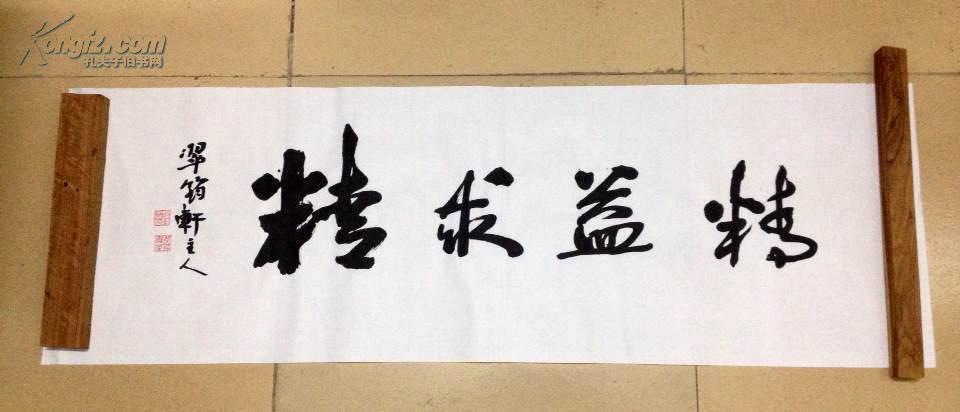 Kongfz.com
孔夫子旧书网
精益求精
翠筠軒主人